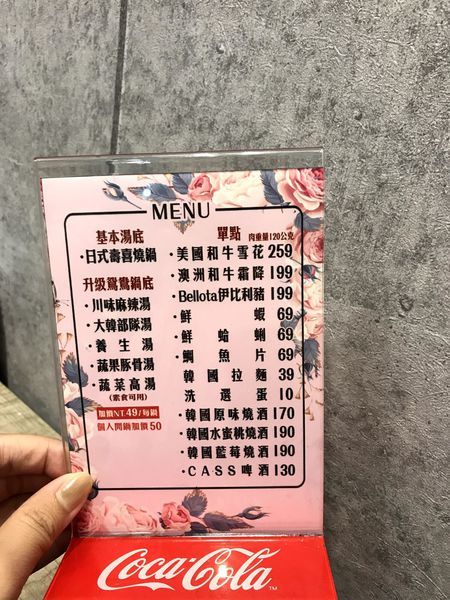 MENU
基本湯底
・日式壽喜燒鍋
升級鴛鴦鍋底
・川味麻辣湯
・大韓部隊湯
・養生湯
・蔬果豚骨湯
・蔬菜高湯
(素食可用)
加價NT.49/每鍋
個人開鍋加價50
單點 肉重量120公克
・美國和牛雪花 259
・澳洲和牛霜降 199
・Bellota伊比利豬 199
・鮮蝦 69
・鮮蛤蜊 69
・鯛魚片 69
韓國拉麵 39
洗選蛋 10
・韓國原味燒酒 170
・韓國水蜜桃燒酒 190
・韓國藍莓燒酒 190
・CASS啤酒 130
Coca-Cola